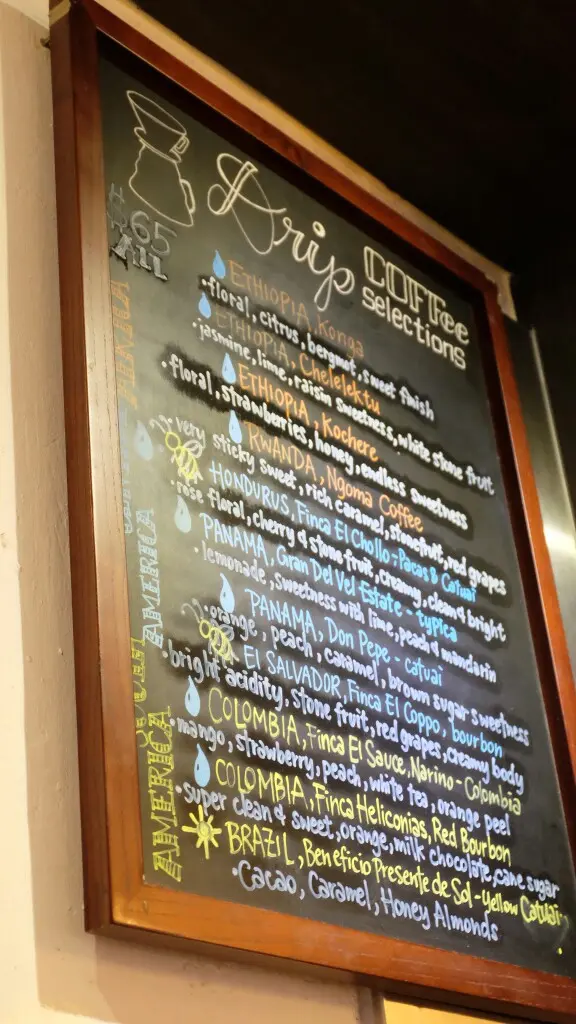 Drip COFFee Selections
$65 ALL
ETHIOPIA, Konga
•floral, citrus, bergmot, sweet finish
ETHIOPIA, Chelelektu
•jasmine, lime, raisin sweetness, white stone fruit
ETHIOPIA, Kochere
•floral, strawberries, honey, endless sweetness
RWANDA, Ngoma Coffee
•very sticky sweet, rich caramel, stonefruit, red grapes
HONDURUS, Finca El Chollo: Pacas & Catuai
•rose floral, cherry & stone fruit, creamy, clean & bright
PANAMA, Gran Del Vel Estate - typica
•lemonade, sweetness with lime, peach & mandarin
PANAMA, Don Pepe - catuai
•orange, peach, caramel, brown sugar sweetness
EL SALVADOR, Finca El Coppo, bourbon
•bright acidity, stone fruit, red grapes, creamy body
COLOMBIA, Finca El Sauce, Narino - Colombia
•mango, strawberry, peach, white tea, orange peel
COLOMBIA, Finca Heliconias, Red Bourbon
•super clean & sweet, orange, milk chocolate, cane sugar
BRAZIL, Beneficio Presente de Sol - yellow Catuai
•Cacao, Caramel, Honey Almonds
AMERICA
AMERICA